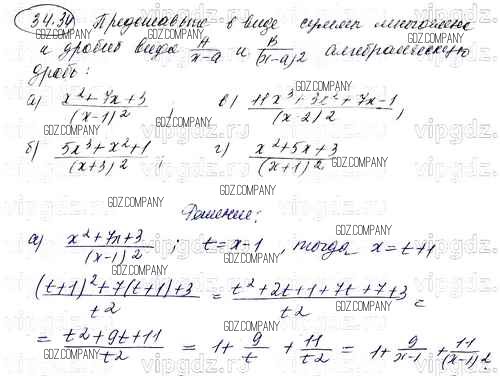 34.34 Представьте в виде суммы многочлена
и дробей вида A/(x-a) и B/(x-a)2 алгебраическую
дробь:
а) (x²+7x+3)/(x-1)2 ; в) (11x³+3x²+7x-1)/(x-2)2 ;
б) (5x³+x²+1)/(x+3)2 ; г) (x²+5x+3)/(x+1)2
Решение:
а) (x²+7x+3)/(x-1)2 ; t=x-1, тогда x=t+1
((t+1)²+7(t+1)+3)/t2 = (t²+2t+1+7t+7+3)/t2 =
= (t2+9t+11)/t2 = 1+9/t+11/t2 = 1+9/(x-1)+11/(x-1)2
GDZ.COMPANY
vipgdz.ru